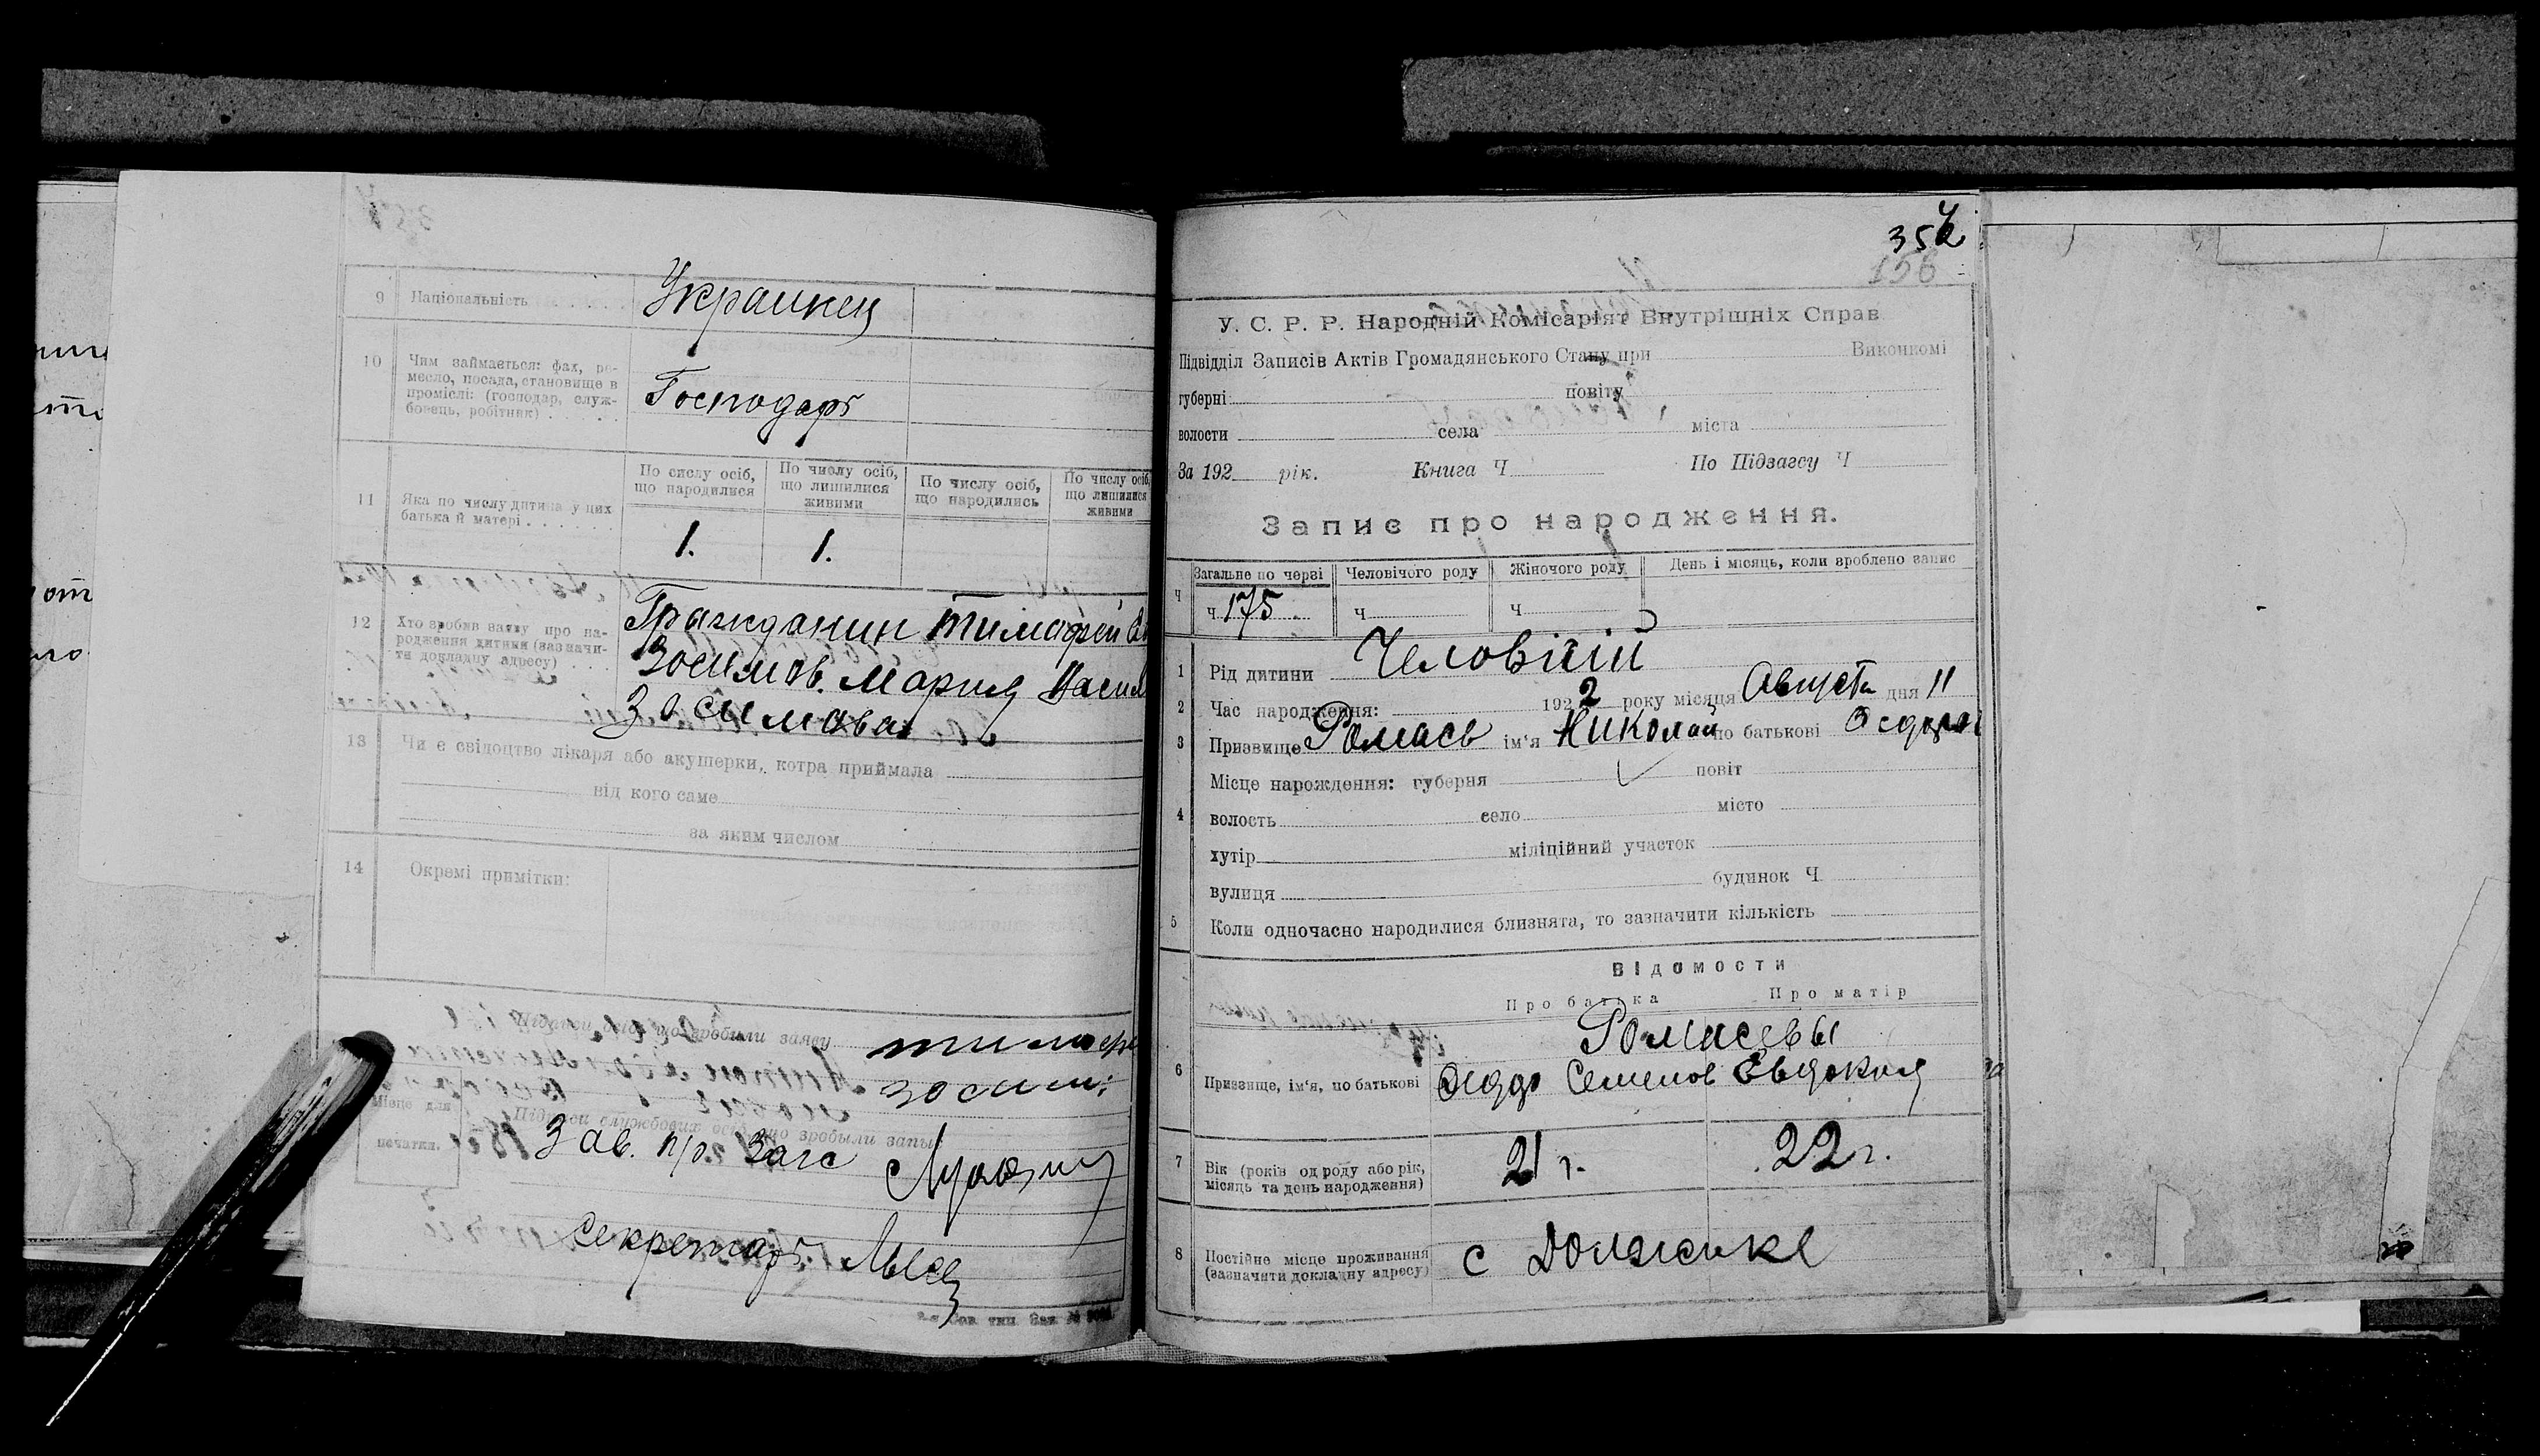 9 Національність Украинец
10 Чим займається: фах, ре-
месло, посада, становище в
промислі: (господар, служ-
бовець, робітник)
Господарь
11 Яка по числу дитина у цих
батька й матері
По числу осіб,
що народилися
По числу осіб,
що лишилися
живими
По числу осіб,
що народились
По числу осіб,
що лишилися
живими
1. 1.
12 Хто зробив заяву про на-
родження дитини (зазначи-
ти докладну адресу)
Гражданин Тимофей
Зосимов. Мария
Зосимова
13 Чи є свідоцтво лікаря або акушерки, котра приймала
від кого саме
за яким числом
14 Окремі примітки:
Підписи осіб, що зробили заяву
Місце для
печатки.
Підписи службових осіб, що зробыли запы
Зав. п/о. Загс
Секретарь
354
156
У. С. Р. Р. Народній Комісаріят Внутрішніх Справ
Підвідділ Записів Актів Громадянського Стану при Виконкомі
губерні повіту
волости села міста
За 192 рік. Книга Ч По Підзагсу Ч
Запис про народження.
Загальне по черзі Человічого роду Жіночого роду День і місяць, коли вроблено запис
Ч ч 175 ч ч
1 Рід дитини Человічій
2 Час народження: 1922 року місяця Августа дня 11
3 Призвище Ромась ім'я Николай по батькові
4 Місце нарождення: губерня повіт
волость село місто
хутір міліційний участок
вулиця будинок Ч
5 Коли одночасно народилися близнята, то зазначити кількість
Відомости
Про батька Про матір
6 Призвище, ім'я, по батькові
Ромасевы
Семенов Евдокия
7 Вік (років од роду або рік,
місяць та день народження)
21 г. 22 г.
8 Постійне місце проживання
(зазначити докладну адресу)
с Должике